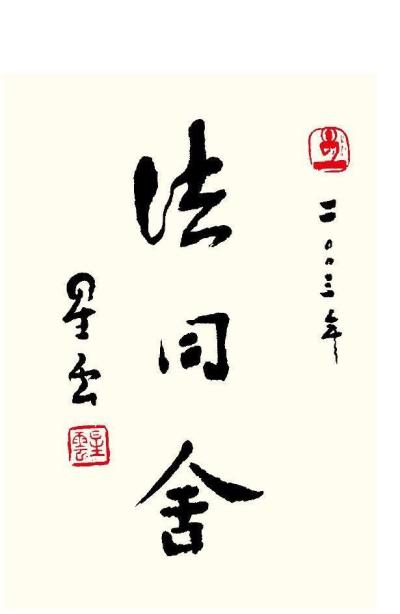 二〇〇三年
法同舍
星云
星雲